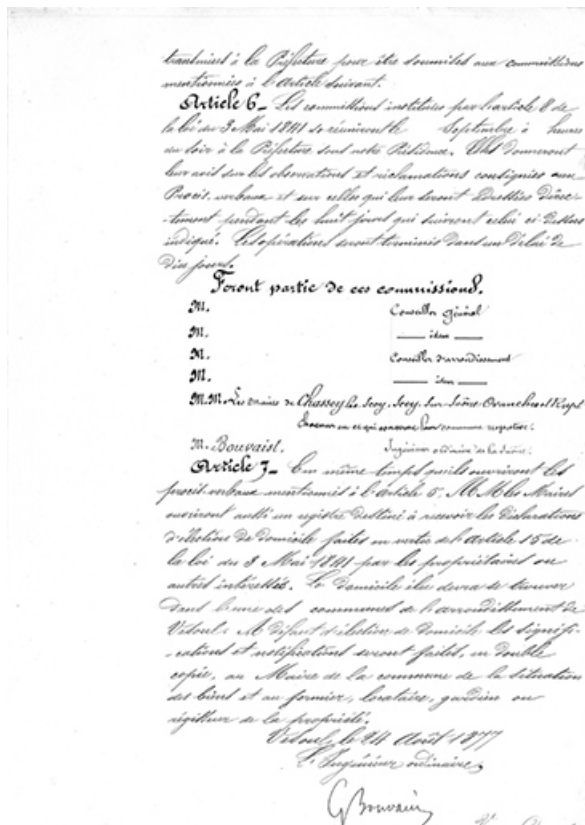 transmises à la Préfecture pour être soumises aux commissions
mentionnées à l'article suivant.
Article 6 _ Les commissions instituées par l'article 8 de
la loi du 3 Mai 1841 se réuniront le Septembre à heure
du soir à la Préfecture sous notre Présidence. Elles donneront
leur avis sur les observations et réclamations consignées aux
Procès-verbaux et sur celles qui leur seront adressées direc-
-tement pendant les huit jours qui suivront celui ci-dessus
indiqué. Les opérations seront terminées dans un délai de
dix jours.
Feront partie de ces commissions.
M. Conseiller général
M. idem
M. Conseiller d'arrondissement
M. idem
M.M. Les maires de Chassey les Scey, Scey-sur-Saône, Ovanches et Rupt
chacun en ce qui concerne leur commune respective.
M. Bouvaist. Ingénieur ordinaire de la Saône.
Article 7 _ En même temps qu'ils ouvriront les
procès-verbaux mentionnés à l'article 5, MM. les Maires
ouvriront aussi un registre destiné à recevoir les déclarations
d'élection de domicile faites en vertu de l'article 15 de
la loi du 3 Mai 1841 par les propriétaires ou
autres intéressés. Le domicile élu devra se trouver
dans l'une des communes de l'arrondissement de
Vesoul. A défaut d'élection de domicile les signifi-
-cations et notifications seront faites, en double
copie, au Maire de la commune de la situation
des biens et au fermier, locataire, gardien ou
régisseur de la propriété.
Vesoul, le 24 Août 1877
L'Ingénieur ordinaire,
G Bouvaist